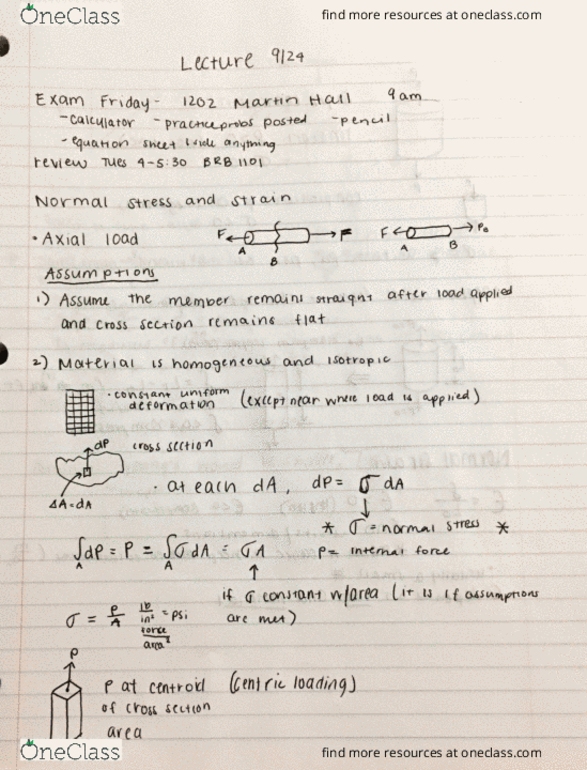 OneClass
find more resources at oneclass.com
Lecture 9/24
Exam Friday - 1202 Martin Hall 9am
-calculator -practice probs posted -pencil
-equation sheet 1 side anything
review Tues 4-5:30 BRB 1101
Normal stress and strain
• Axial load
F A B F
F A B P₀
Assumptions
1) Assume the member remains straight after load applied
and cross section remains flat
2) Material is homogeneous and isotropic
• constant uniform
deformation (except near where load is applied)
dP cross section
ΔA=dA
• at each dA, dP = σ dA
* σ = normal stress *
∫_A dP = P = ∫_A σ dA = σA
P = internal force
if σ constant w/area (it is if assumptions
are met)
σ = P/A lb/in² = psi
force/area
P
P at centroid (centric loading)
of cross section
area
OneClass
find more resources at oneclass.com